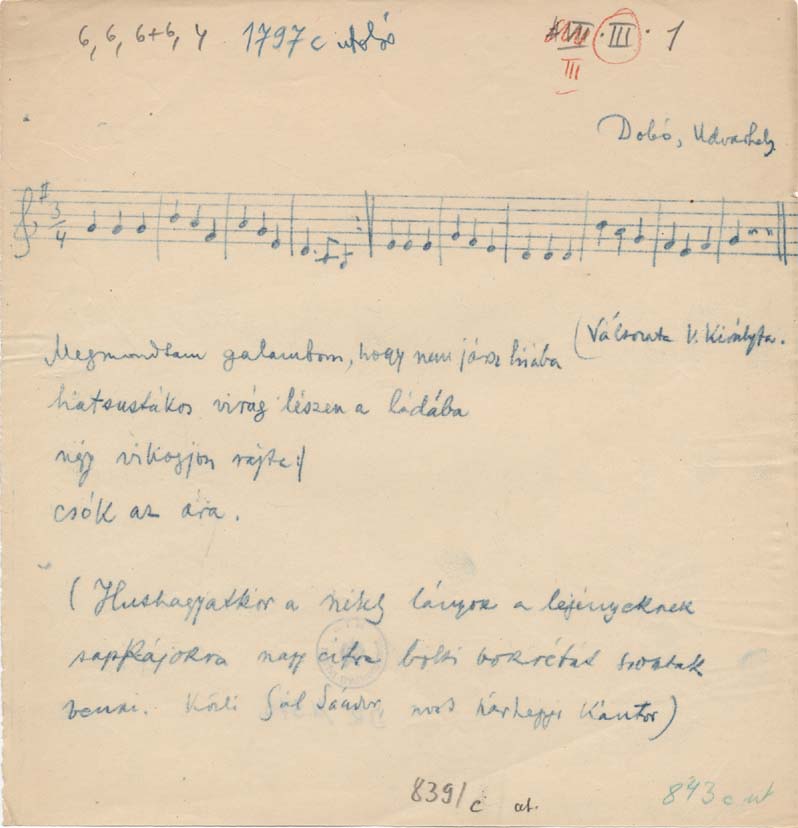 6, 6, 6+6, 4 1797 c utolsó VII · III · 1
III
Dobó, Udvarhely.
3/4
Megmondtam galambom, hogy nem jársz hiába (Válaszuta V. Királyfa.
hatsustákos virág lészen a ládába
négy rajta :|
csók az ára.
(Hushagyatkor a lányok a legényeknek
sapkájokra nagy cifra bolti bokrétát szoktak
venni. Közli Gál Sándor, most Kántor)
839/c at.
843 c ut